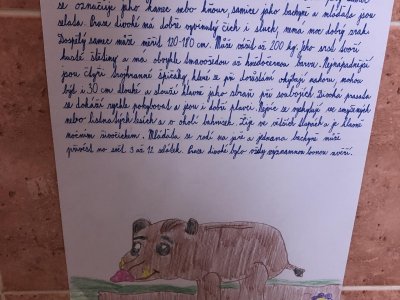 se označuje jako samec nebo kňour, samice jako bachyně a mláďata jsou
selata. Prase divoké má dobře vyvinutý čich i sluch, nemá moc dobrý zrak.
Dospělý samec může měřit 120-180 cm. Může vážit až 200 kg. Jeho srst tvoří
husté štětiny a má obvykle tmavošedou až hnědočernou barvu. Nejnápadnější
jsou čtyři trojhranné špičáky, které se při dorůstání ohýbají nahoru, mohou
být i 30 cm dlouhé a slouží hlavně jako zbraň při soubojích. Divoká prasata
se dokáží rychle pohybovat a jsou i dobří plavci. Nejvíce se vyskytují ve smíšených
nebo listnatých lesích a v okolí bahnisek. Žijí ve větších tlupách a je hlavně
nočním živočichem. Mláďata se rodí na jaře a jedna bachyně může
přivést na svět 3 až 12 selátek. Prase divoké bylo vždy významnou lovnou zvěří.